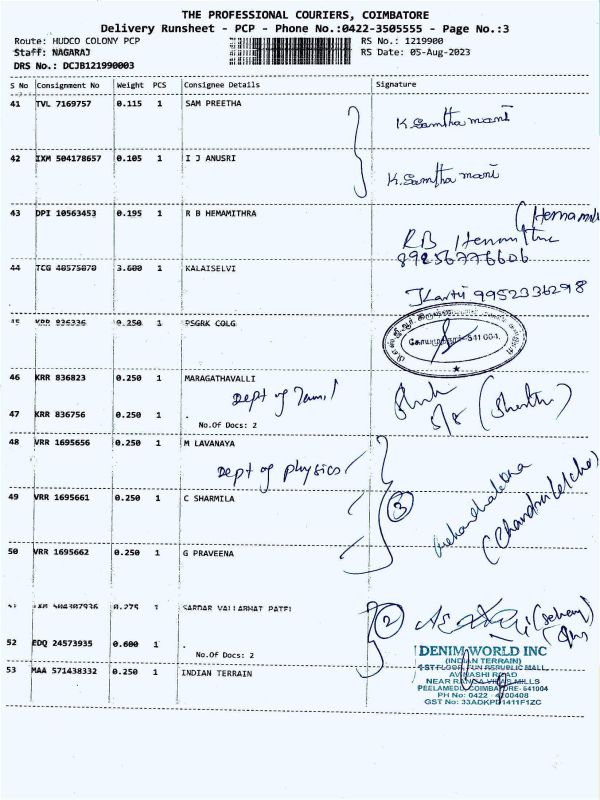 THE PROFESSIONAL COURIERS, COIMBATORE
Delivery Runsheet - PCP - Phone No.:0422-3505555 - Page No.:3
Route: HUDCO COLONY PCP RS No.: 1219900
Staff: NAGARAJ RS Date: 05-Aug-2023
DRS No.: DCJB121990003
S No Consignment No Weight PCS Consignee Details Signature
41 TVL 7169757 0.115 1 SAM PREETHA
K. Samtha mani
42 IXM 504178657 0.105 1 I J ANUSRI
K. Samtha mani
43 DPI 10563453 0.195 1 R B HEMAMITHRA
RB
89256776606
44 TCG 40575070 3.600 1 KALAISELVI
9952336298
45 KRR 836336 0.250 1 PSGRK COLG
641 004.
46 KRR 836823 0.250 1 MARAGATHAVALLI
Dept of Tamil
5/8
47 KRR 836756 0.250 1 .
No.Of Docs: 2
48 VRR 1695656 0.250 1 M LAVANAYA
Dept of physics
49 VRR 1695661 0.250 1 C SHARMILA
3
50 VRR 1695662 0.250 1 G PRAVEENA
51 IXM 504307936 0.275 1 SARDAR VALLABHAT PATEL
2
52 EDQ 24573935 0.600 1 .
No.Of Docs: 2
53 MAA 571438332 0.250 1 INDIAN TERRAIN
DENIM WORLD INC
(INDIAN TERRAIN)
1 ST FLOOR, FUN REPUBLIC MALL,
AVINASHI ROAD
NEAR RANGA VILAS MILLS
PEELAMEDU, COIMBATORE- 641004
PH No: 0422 - 4700408
GST No: 33ADKPD1411F1ZC